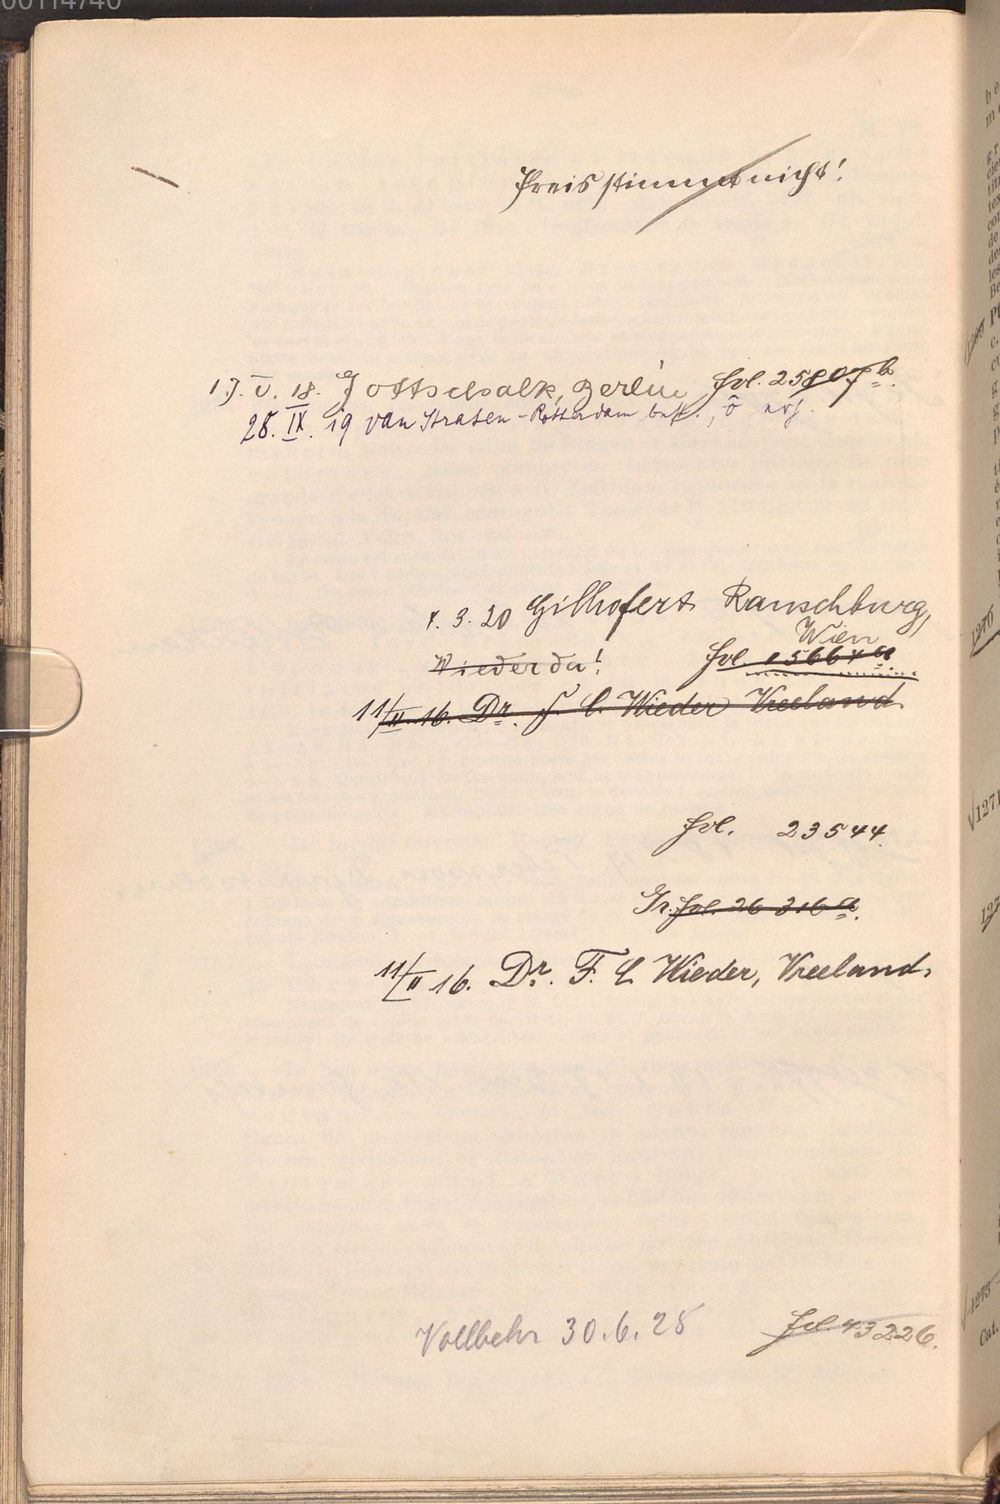 00114740
Preis stimmt nicht!
17. V. 18. Gottschalk, Berlin fol. 25807 b.
28. IX. 19 van Straten-Rotterdam best.,
1. 3. 20 Gilhofer & Ranschburg,
Wien
Wieder da! fol.
11/II. 16. Dr. F. C. Wieder Vreeland.
fol. 23544.
fol. 26 316 a.
11/II 16. Dr. F. C Wieder, Vreeland.
Vollbehr 30.6.25 fol 43226.
1276
1271
1273
Cat.